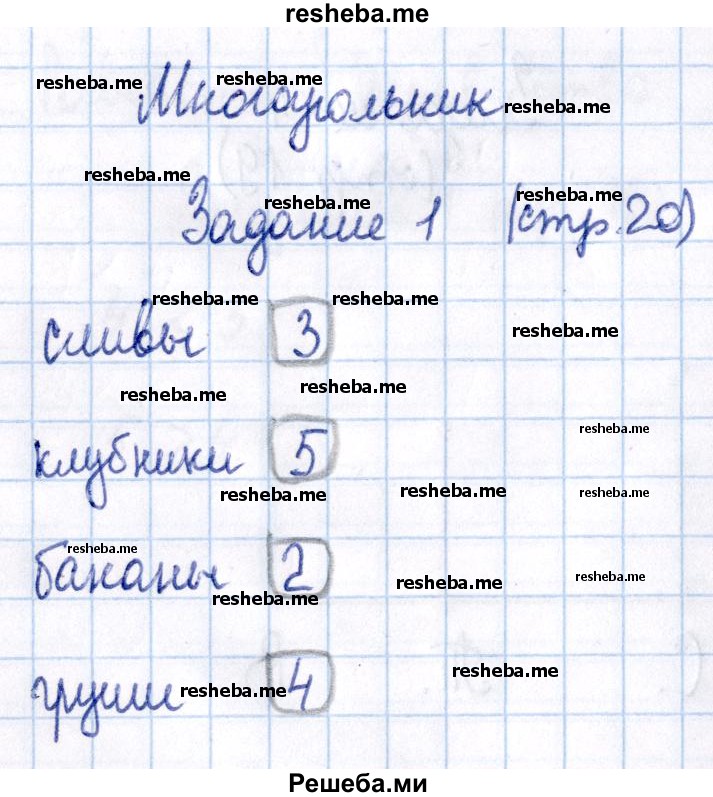 resheba.me
resheba.me resheba.me
Многоугольник resheba.me
resheba.me
resheba.me resheba.me
Задание 1 (стр.20)
resheba.me resheba.me
сливы 3 resheba.me
resheba.me resheba.me
resheba.me
клубники 5
resheba.me resheba.me resheba.me
resheba.me
бананы 2 resheba.me resheba.me
resheba.me
resheba.me
груши resheba.me 4
Решеба.ми